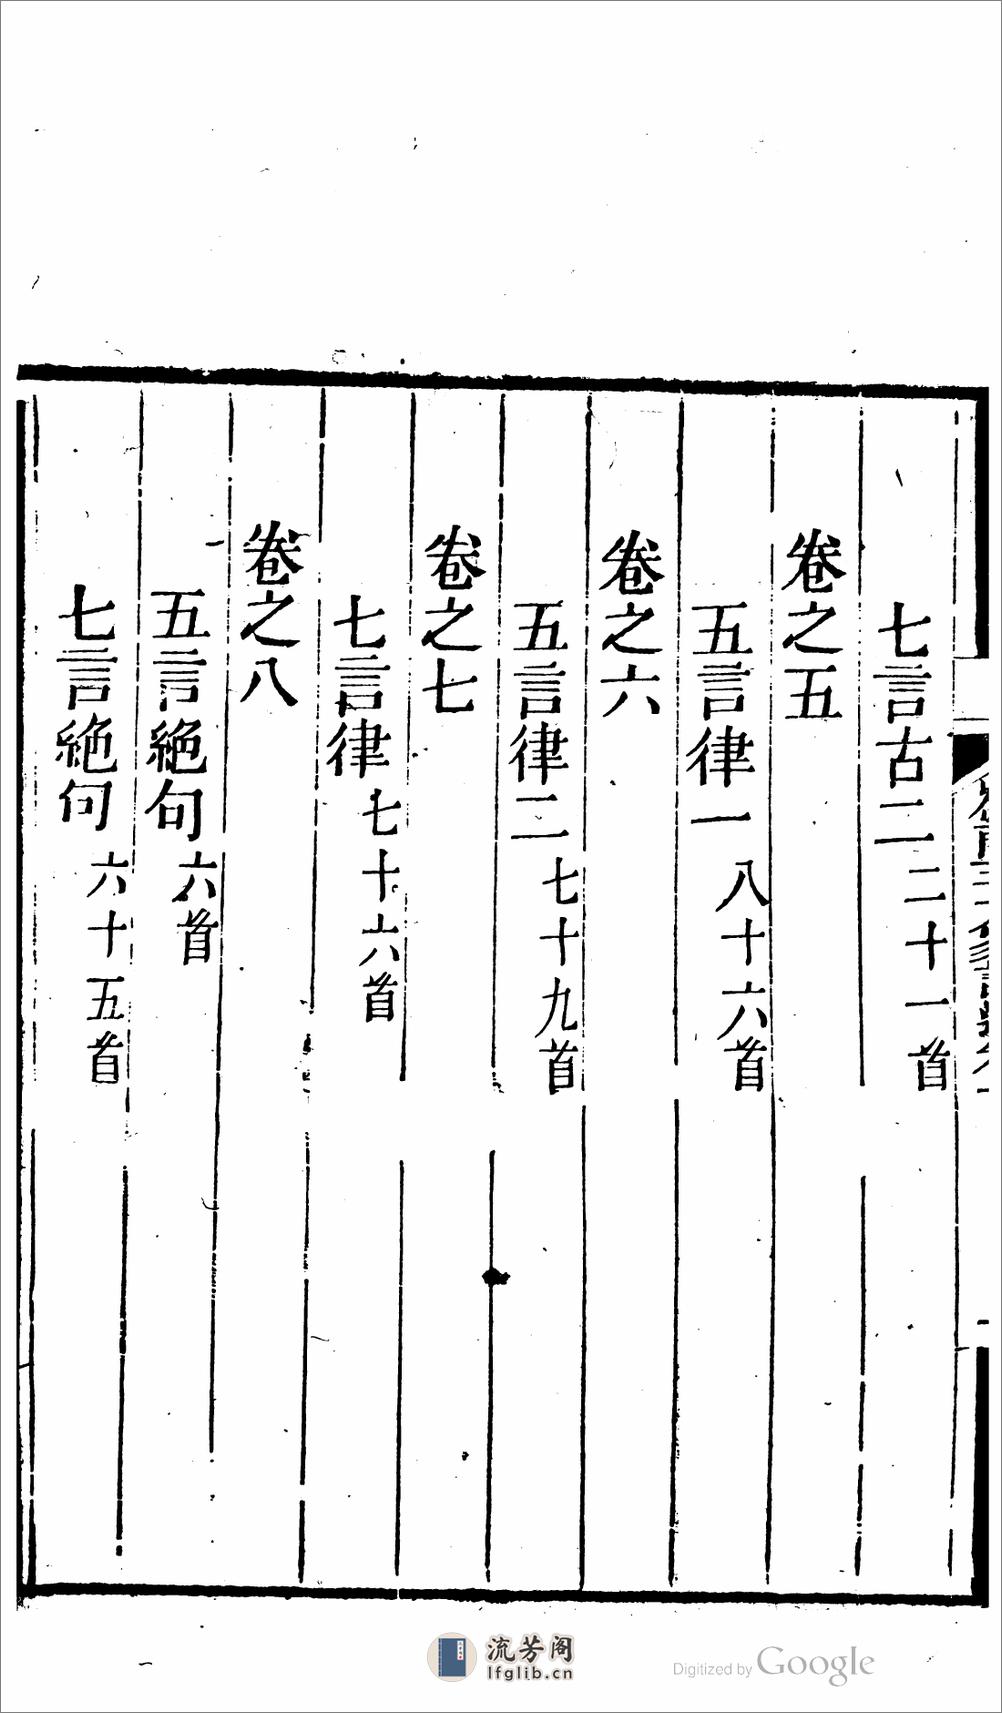 七言古二二十一首
卷之五
五言律一八十六首
卷之六
五言律二七十九首
卷之七
七言律七十六首
卷之八
五言絶句六首
七言絶句六十五首
流芳阁
lfglib.cn
Digitized by Google